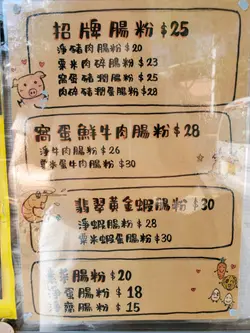 招牌腸粉 $25
淨豬肉腸粉 $20
粟米肉碎腸粉 $23
窩蛋豬潤腸粉 $25
肉碎豬潤蛋腸粉 $28
窩蛋鮮牛肉腸粉 $28
淨牛肉腸粉 $26
粟米蛋牛肉腸粉 $30
翡翠黃金蝦腸粉 $30
淨蝦腸粉 $28
粟米蝦蛋腸粉 $30
腸粉 $20
淨蛋腸粉 $18
淨齋腸粉 $15